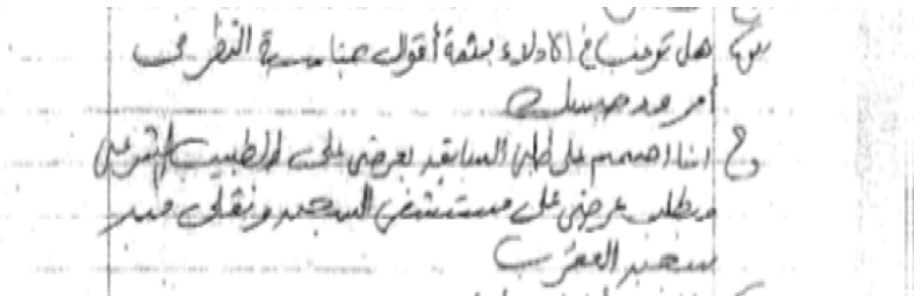 س/ هل ترغب في الادلاء بثمة أقوال بمناسبة النظر في
أمر مد حبسك
ج/ انا اصمم على طلبى السابق بعرضى على الطبيب الشرعى
وبطلب عرضى على مستشفى السجن ونقلى من
سجن العقرب